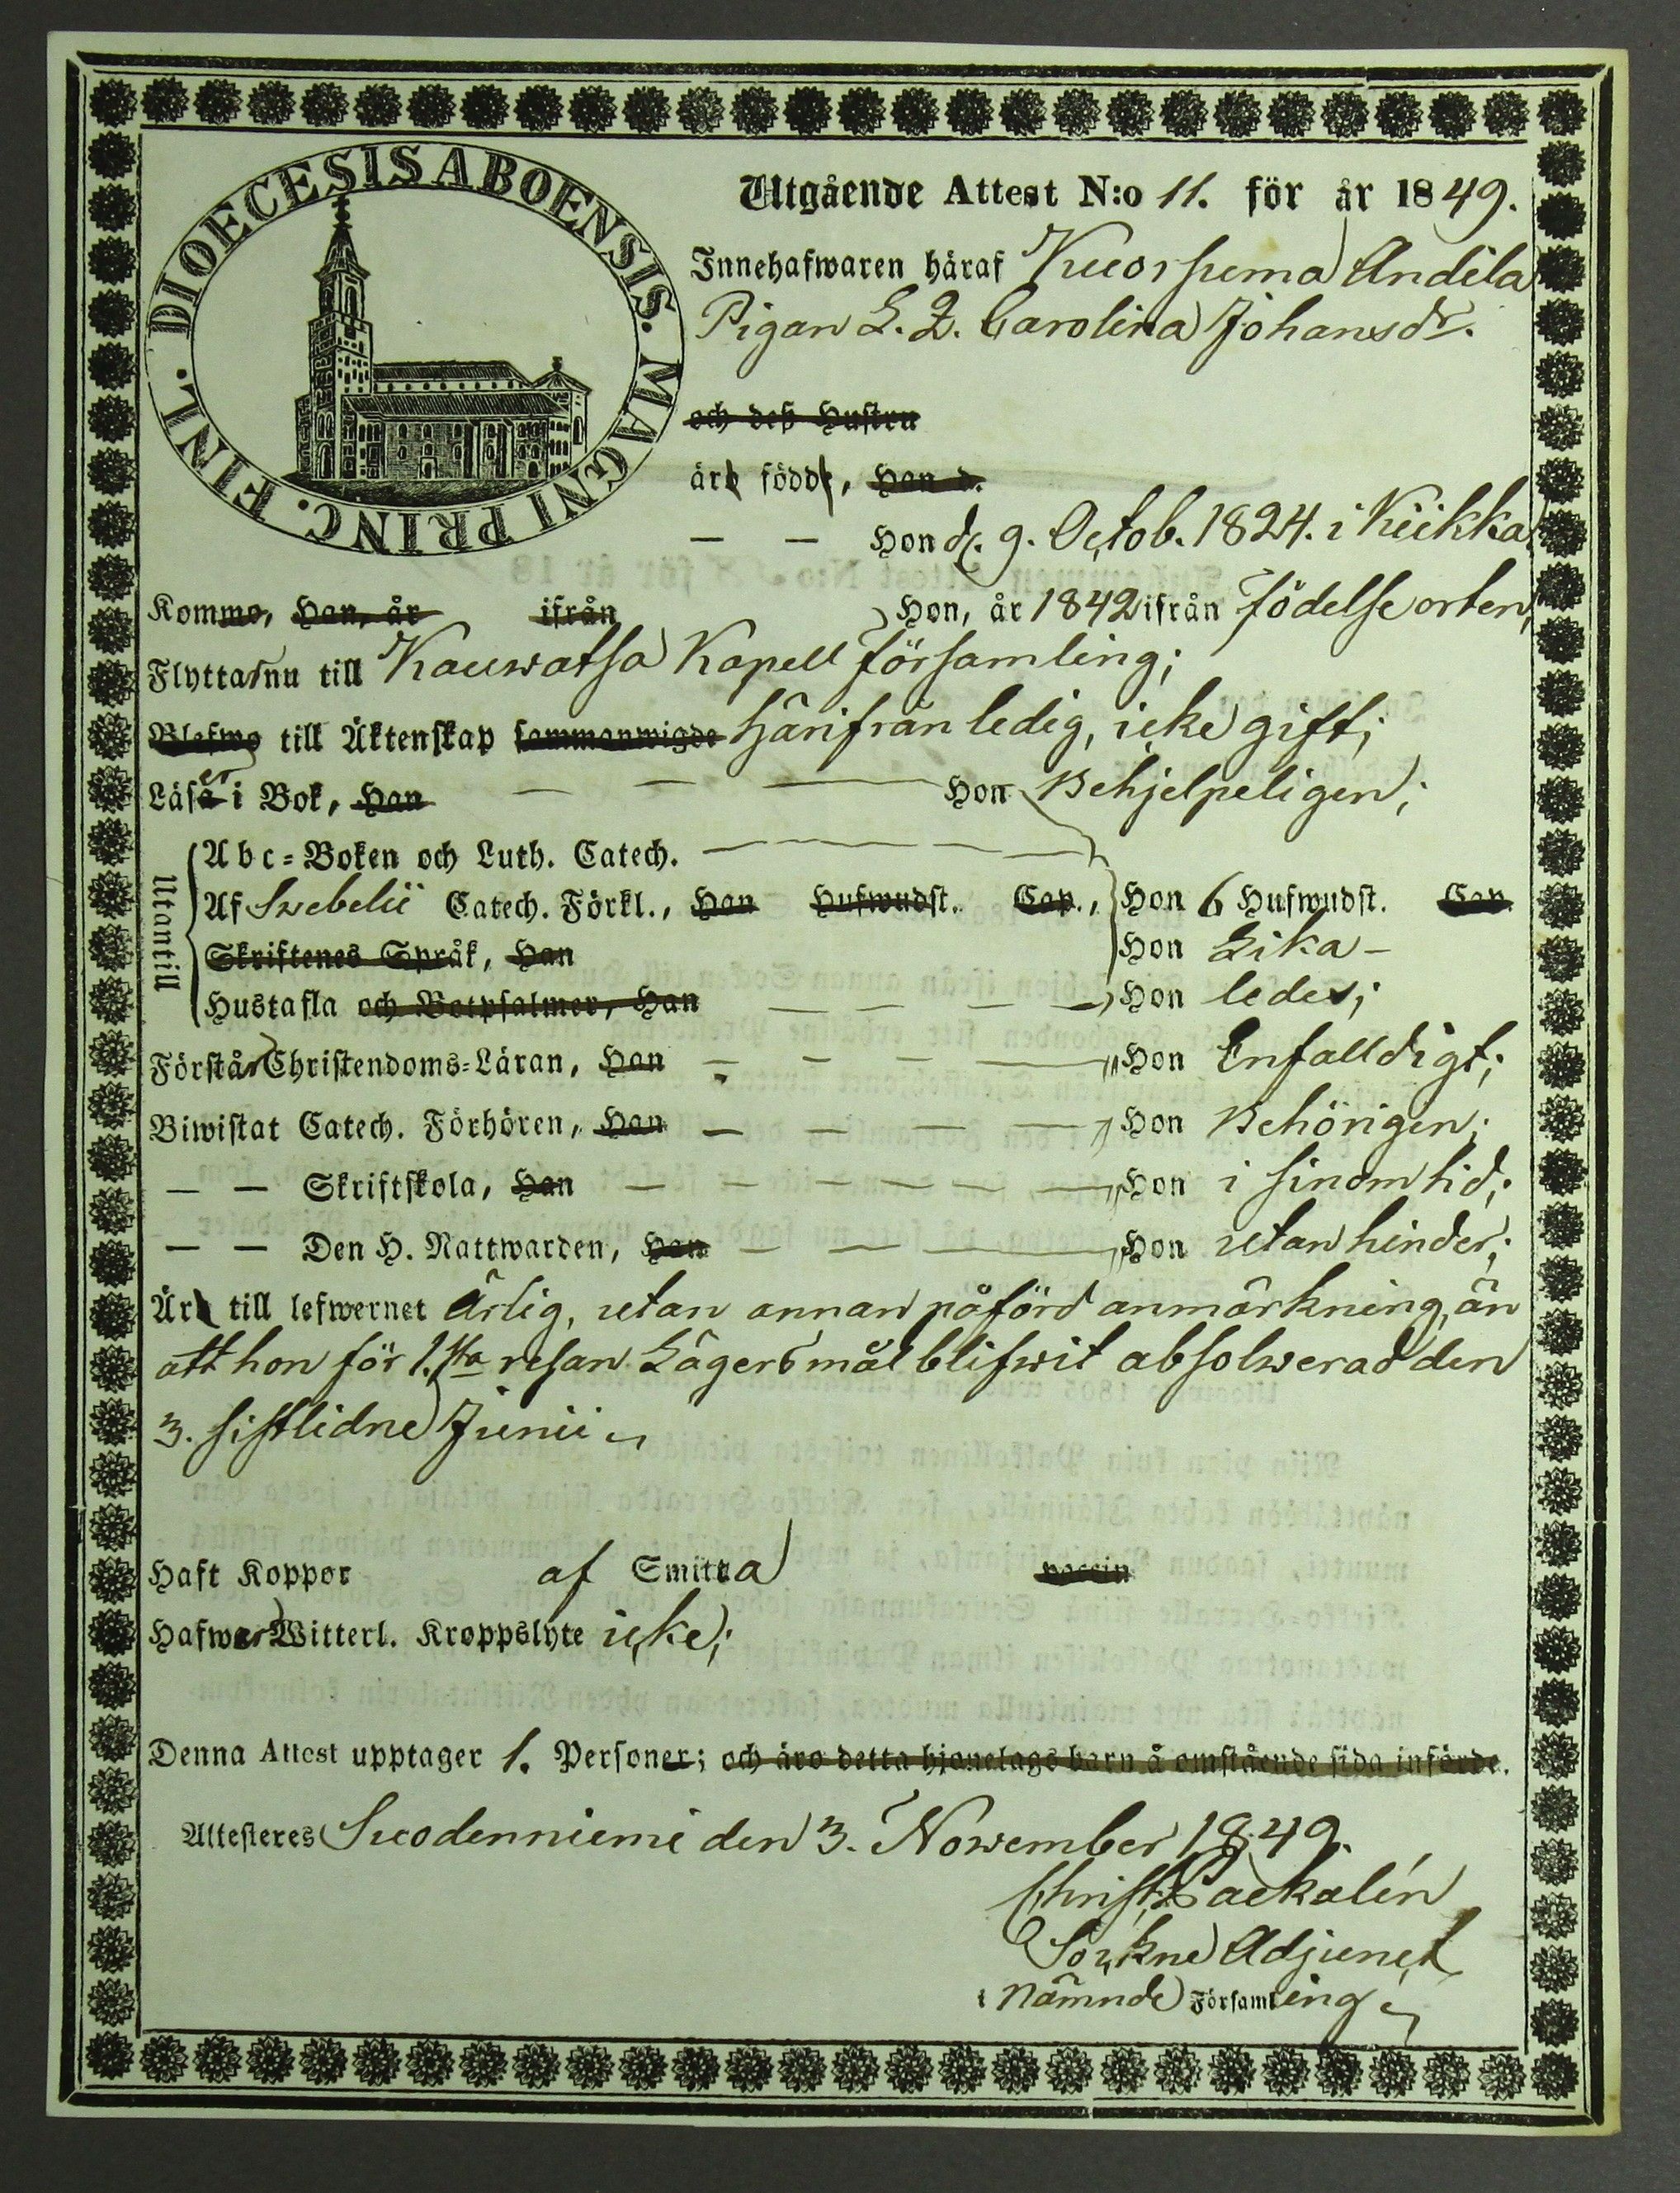 DIOECESIS ABOENSIS. MAGNI PRINC. FINL.
Utgående Attest N:o 11. för år 1849.
Innehafwaren häraf Kuorsuma Andila
Pigan L. Z. Carolina Johansdr.
och deß Hustru
äro födde, Han d.
— — Hon d. 9. Octob. 1824. i Kiikka,
Kommo, Han, år ifrån Hon, år 1842 ifrån födelse orten,
Flyttar nu till Kauwatsa Kapell församling;
Blefwo till Äktenskap sammanwigde härifrån ledig, icke gift;
Läser i Bok, Han — — — Hon Behjelpeligen;
Utantill
Abc-Boken och Luth. Catech. — — — —
Af Swebelii Catech. Förkl., Han Hufwudst. Cap., Hon 6 Hufwudst. Cap.
Skriftenes Språk, Han Hon Lika-
Hustafla och Botpsalmer, Han — — — — Hon ledes;
Förstår Christendoms-Läran, Han — — — — Hon Enfalldigt;
Biwistat Catech. Förhören, Han — — — — Hon Behörigen;
— — Skriftskola, Han — — — — — — Hon i sinom tid;
— — Den H. Nattwarden, Han — — — Hon utan hinder;
Är till lefwernet Ärlig, utan annan påförd anmärkning, än
att hon för 1.sta resan Lägersmål blifwit absolwerad den
3. sistlidne Junii
Haft Koppor af Smitta vaccin
Hafwer Witterl. Kroppslyte icke;
Denna Attest upptager 1. Personer; och äro detta hjonelags barn å omstående sida införde.
Attesteres Suodenniemi den 3. November 1849.
Christ. Packalén
Sockne Adjunct
i nämnde Församling